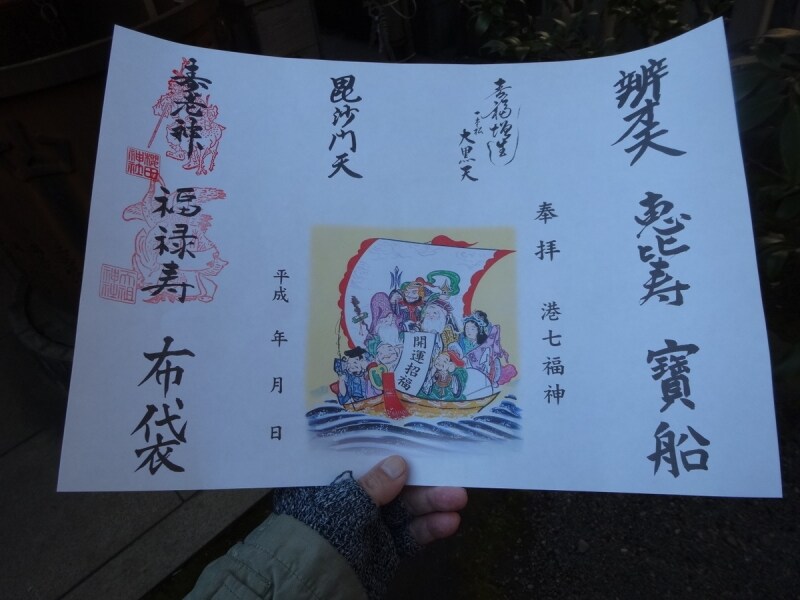 辨才天
恵比寿
寶船
大黒天
奉拝 港七福神
毘沙門天
開運招福
平成 年 月 日
寿老神
福禄寿
布袋